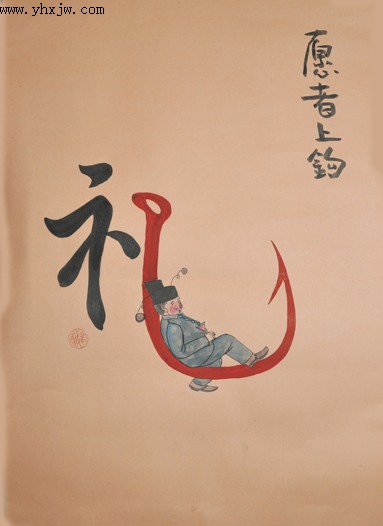 www.yhxjw.com
愿者上鈎
礼